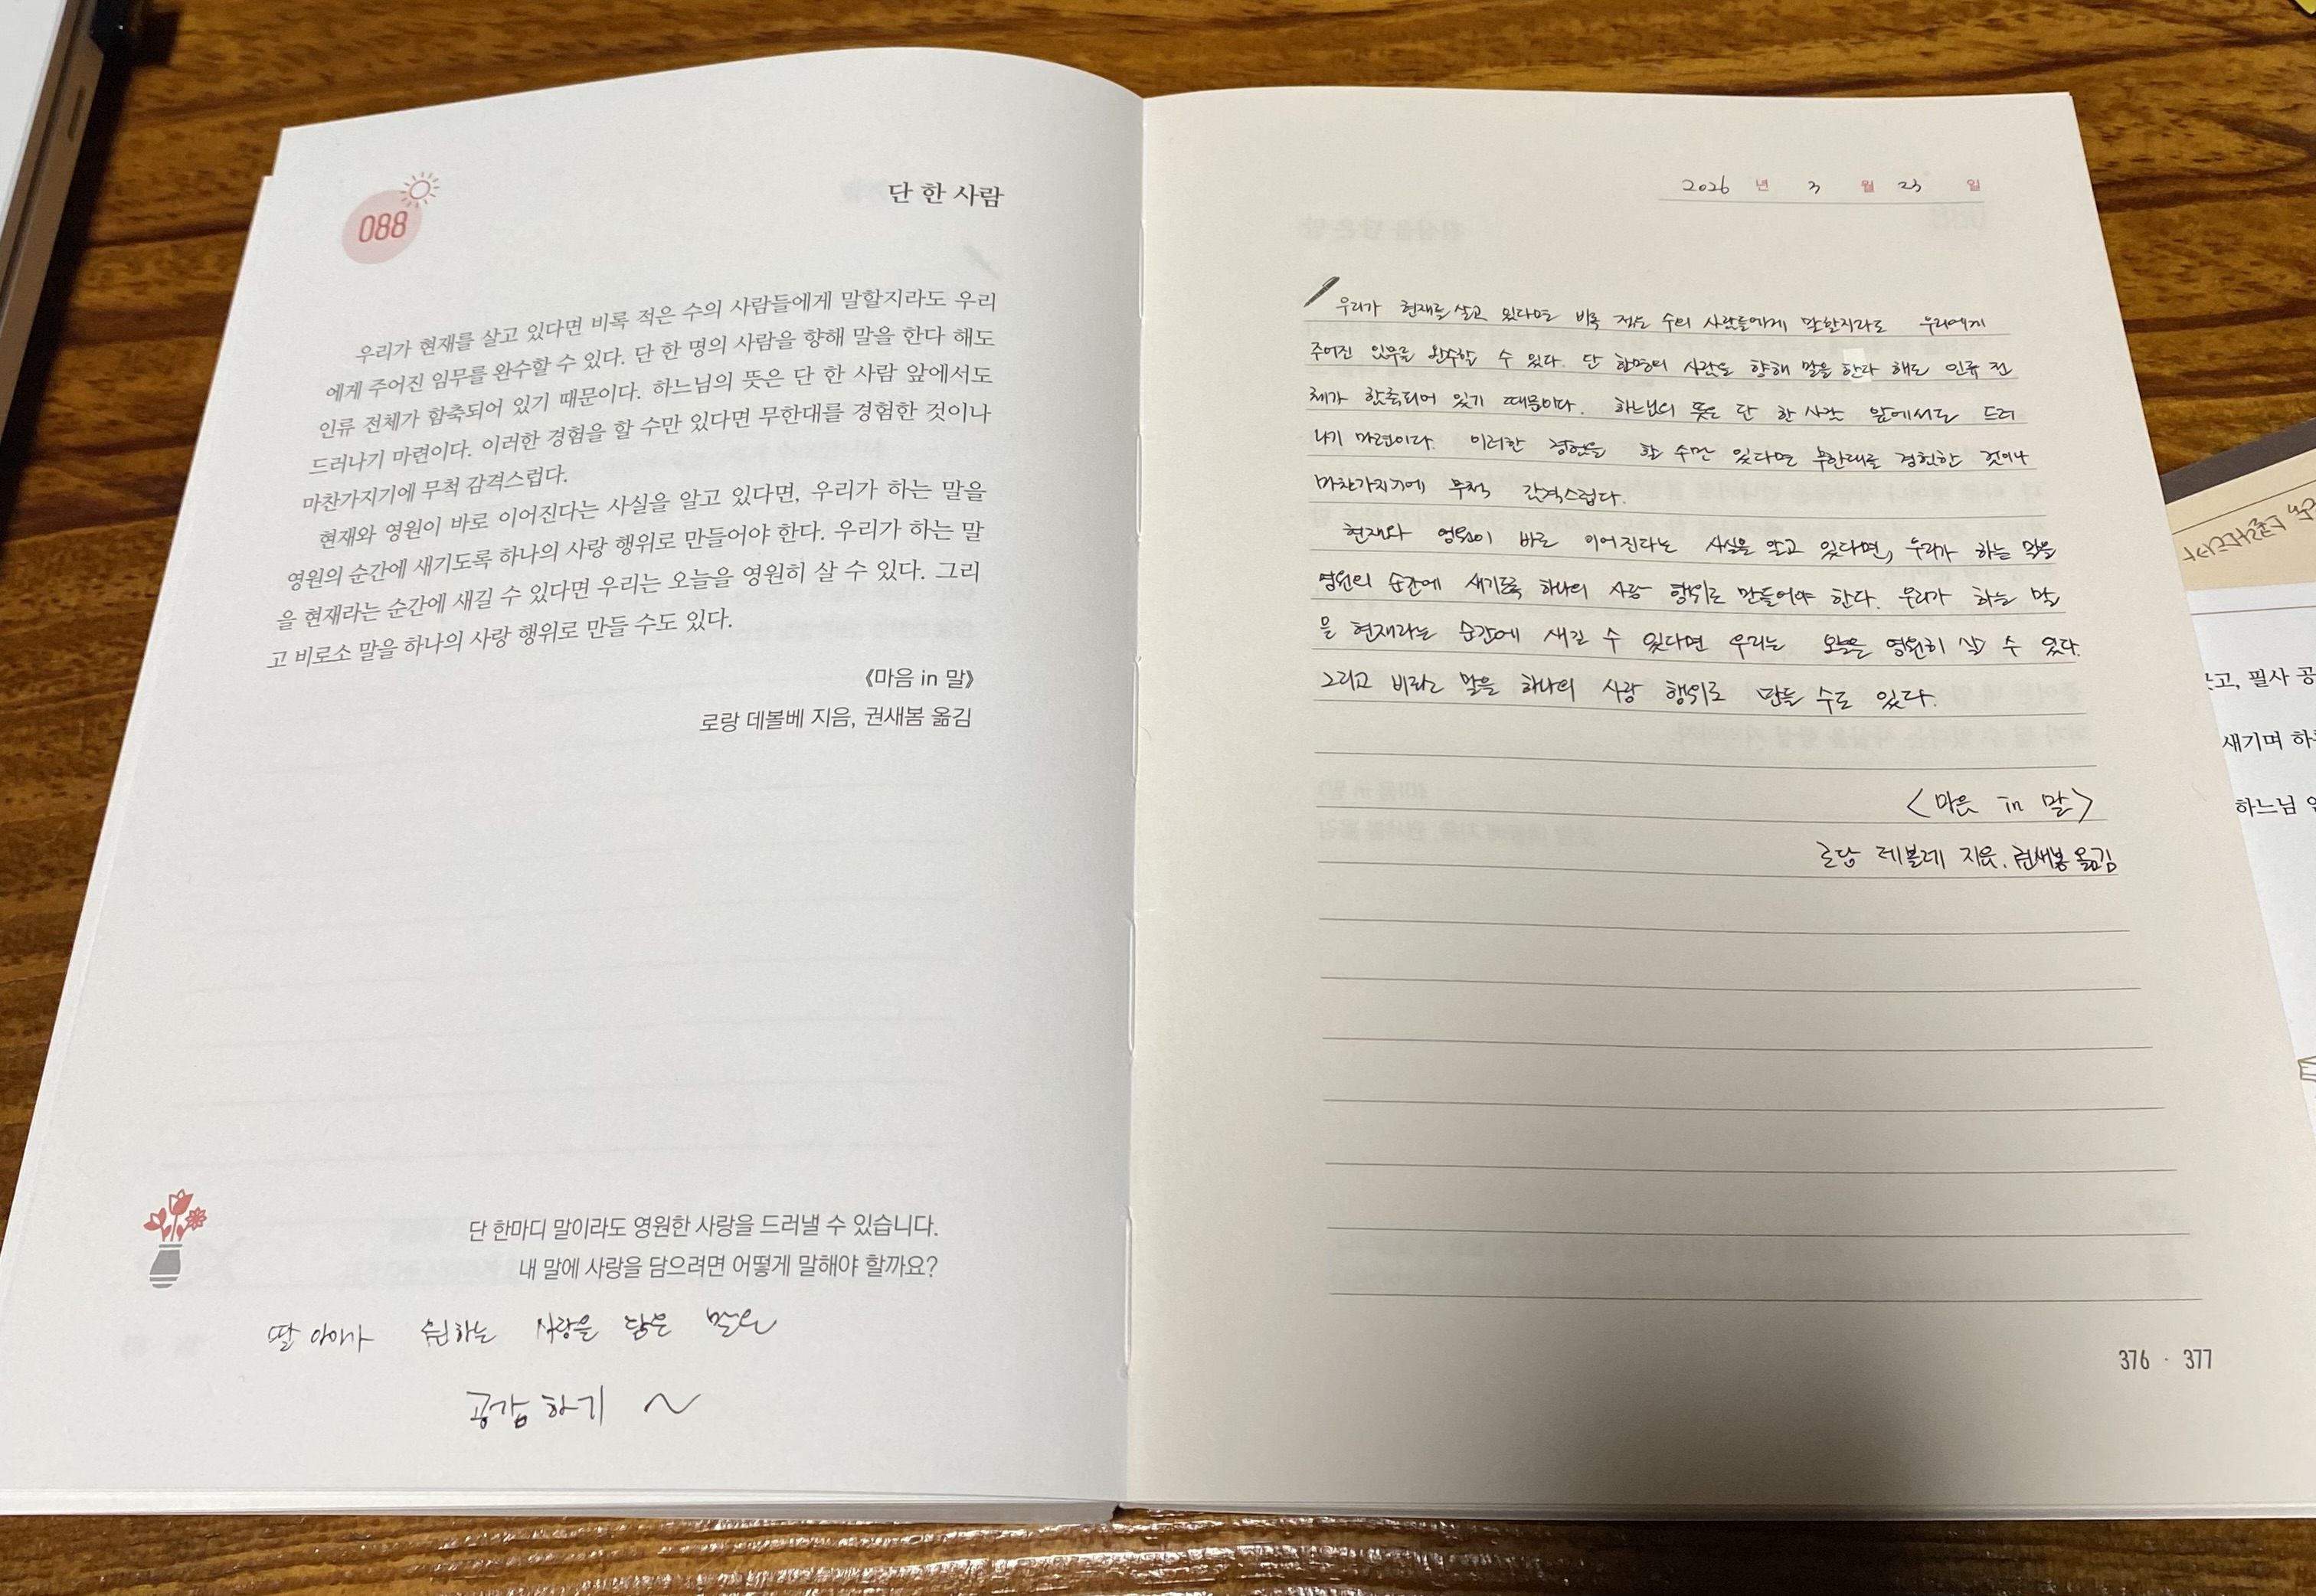 088
단 한 사람
우리가 현재를 살고 있다면 비록 적은 수의 사람들에게 말할지라도 우리
에게 주어진 임무를 완수할 수 있다. 단 한 명의 사람을 향해 말을 한다 해도
인류 전체가 함축되어 있기 때문이다. 하느님의 뜻은 단 한 사람 앞에서도
드러나기 마련이다. 이러한 경험을 할 수만 있다면 무한대를 경험한 것이나
마찬가지기에 무척 감격스럽다.
현재와 영원이 바로 이어진다는 사실을 알고 있다면, 우리가 하는 말을
영원의 순간에 새기도록 하나의 사랑 행위로 만들어야 한다. 우리가 하는 말
을 현재라는 순간에 새길 수 있다면 우리는 오늘을 영원히 살 수 있다. 그리
고 비로소 말을 하나의 사랑 행위로 만들 수도 있다.
《마음 in 말》
로랑 데볼베 지음, 권새봄 옮김
단 한마디 말이라도 영원한 사랑을 드러낼 수 있습니다.
내 말에 사랑을 담으려면 어떻게 말해야 할까요?
딸 아이가 원하는 사랑을 담은 말은
공감하기 ~
2026 년 3 월 23 일
우리가 현재를 살고 있다면 비록 적은 수의 사람들에게 말할지라도 우리에게
주어진 임무를 완수할 수 있다. 단 한명의 사람을 향해 말을 한다 해도 인류 전
체가 함축되어 있기 때문이다. 하느님의 뜻은 단 한 사람 앞에서도 드러
나기 마련이다. 이러한 경험을 할 수만 있다면 무한대를 경험한 것이나
마찬가지기에 무척 감격스럽다.
현재와 영원이 바로 이어진다는 사실을 알고 있다면, 우리가 하는 말을
영원의 순간에 새기도록 하나의 사랑 행위로 만들어야 한다. 우리가 하는 말
을 현재라는 순간에 새길 수 있다면 우리는 오늘을 영원히 살 수 있다.
그리고 비로소 말을 하나의 사랑 행위로 만들 수도 있다.
<마음 in 말>
로랑 데볼베 지음. 권새봄 옮김
376 · 377
고, 필사 공
새기며 하
하느님